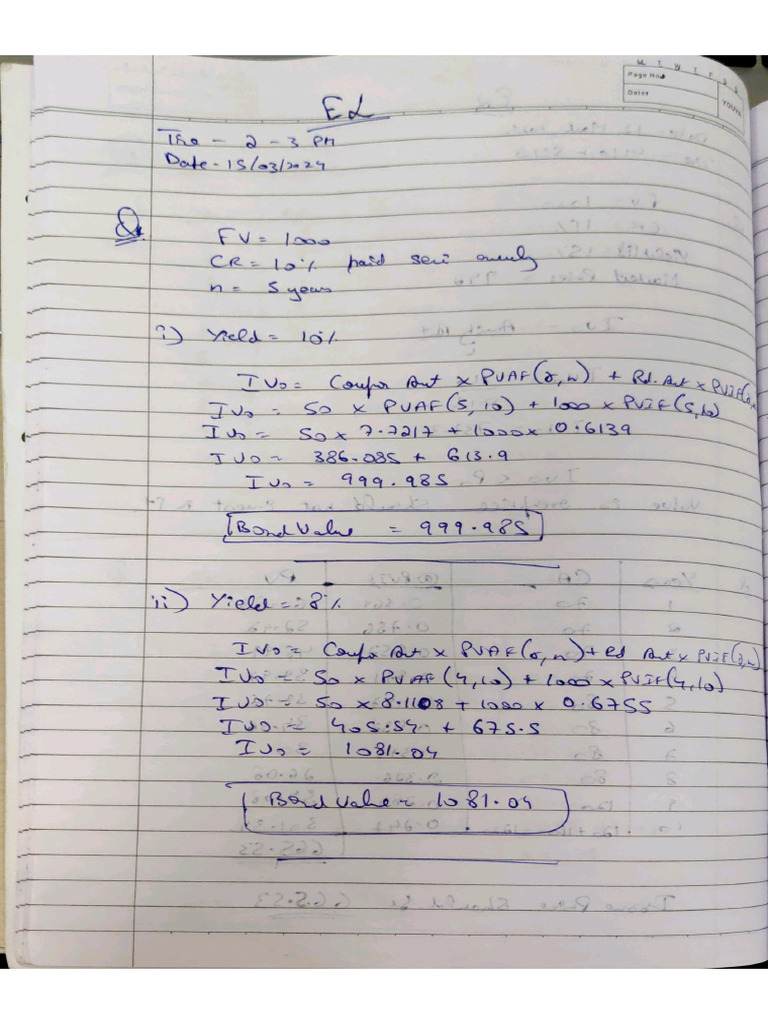 M T W T F S S
Page No.:
Date:
YOUVA
EL
- 2 - 3 PM
Date - 15/03/2024
Q.
FV = 1000
CR = 10% paid semi
n = 5 years
i) Yield = 10%
IV0 = Coupon Amt x PVAF(r,n) + Rd. Amt x PVIF(r,n)
IV0 = 50 x PVAF(5,10) + 1000 x PVIF(5,10)
IV0 = 50 x 7.7217 + 1000 x 0.6139
IV0 = 386.085 + 613.9
IV0 = 999.985
Bond Value = 999.985
ii) Yield = 8%
IV0 = Coupon Amt x PVAF(r,n) + Rd Amt x PVIF(r,n)
IV0 = 50 x PVAF(4,10) + 1000 x PVIF(4,10)
IV0 = 50 x 8.1108 + 1000 x 0.6755
IV0 = 405.54 + 675.5
IV0 = 1081.04
Bond Value = 1081.04